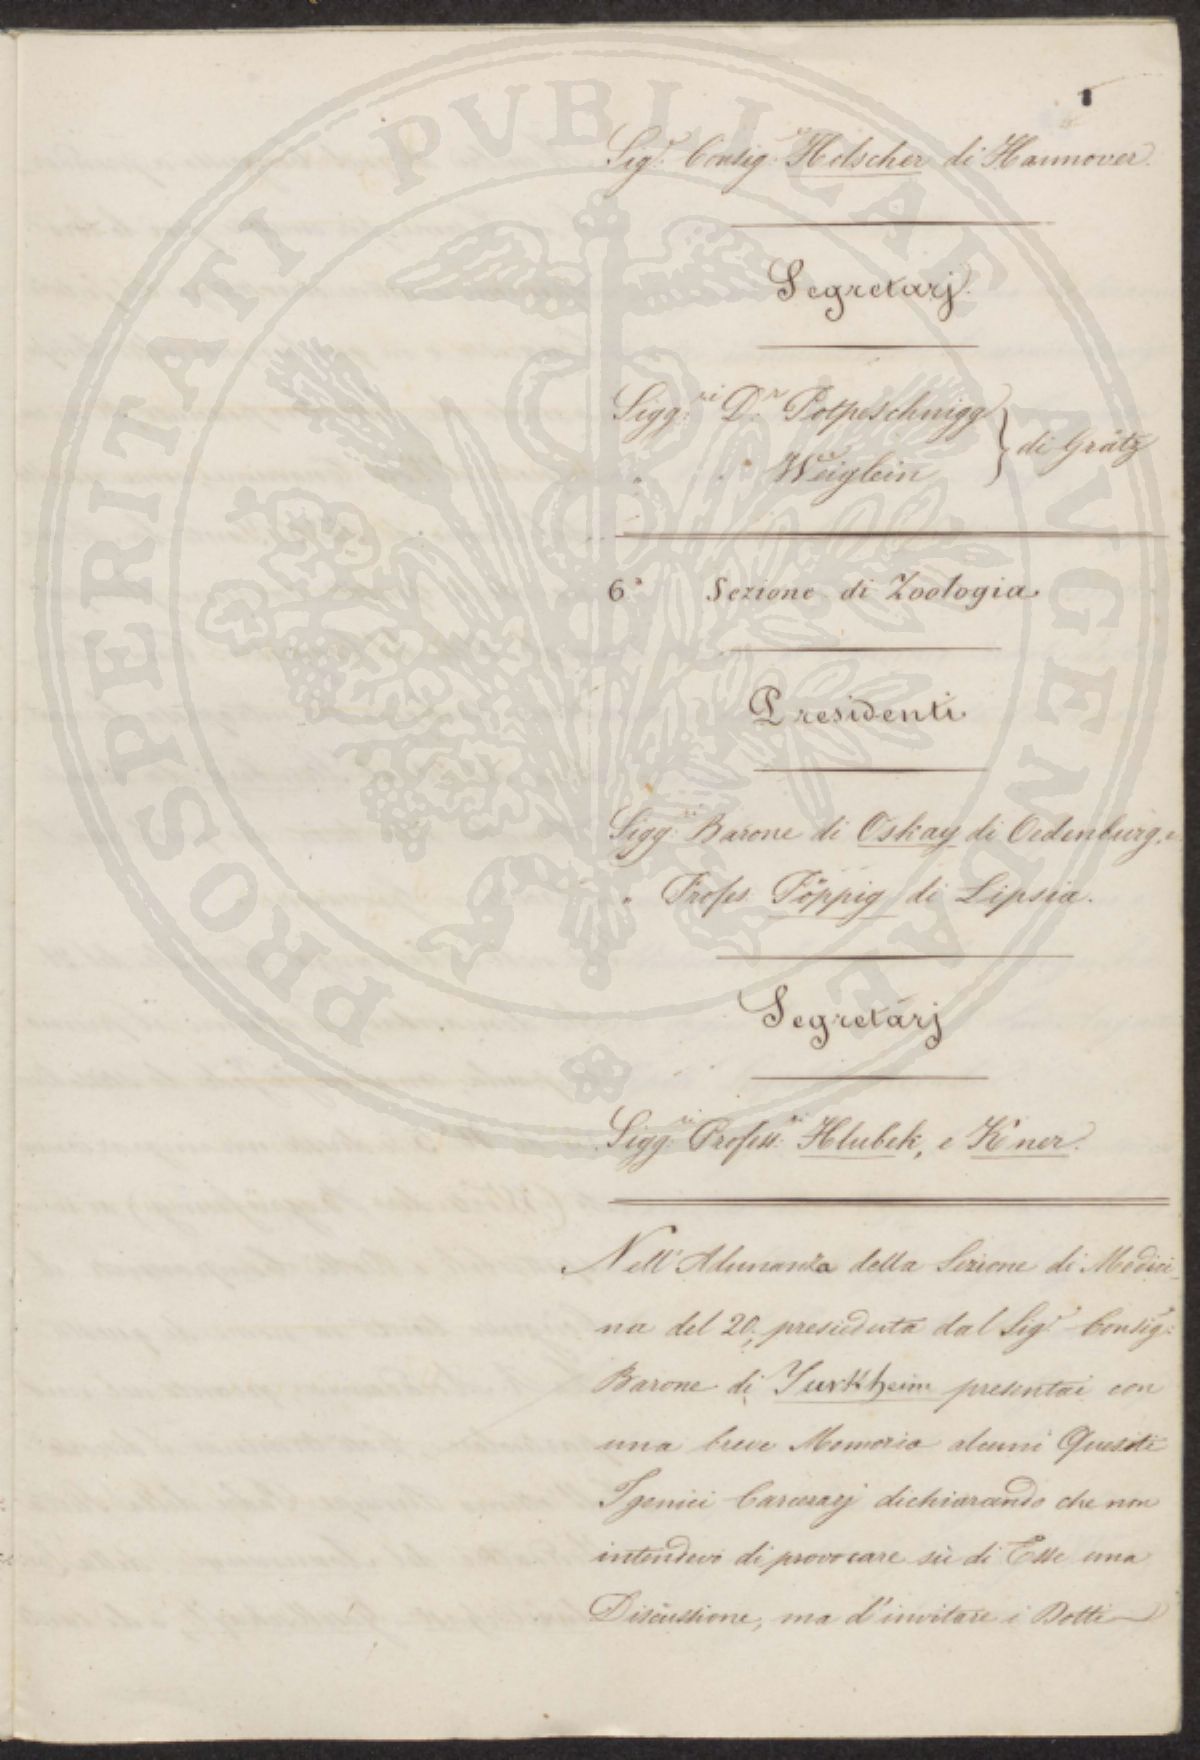 PROSPERITATI PVBLICAE AVGENDAE
Sig.r Consig.e Holscher di Hannover.
Segretarj.
Sigg.ri D.r Potpeschnigg } di Grätz
" " Weiglein
6.a Sezione di Zoologia
Presidenti
Sigg.ri Barone di Oskay di Oedenburg, e
" Profes. Pöppig di Lipsia.
Segretarj
Sigg.ri Profess.ri Hlubek, e Kner.
Nell'Adunanza della Sezione di Medici-
na del 20, presieduta dal Sig.r Consig.e
Barone di Turkheim presentai con
una breve Memoria alcuni Quesiti
Igenici Carcerarj dichiarando che non
intendevo di provocare sù di Esse una
Discussione, ma d'invitare i Dotti